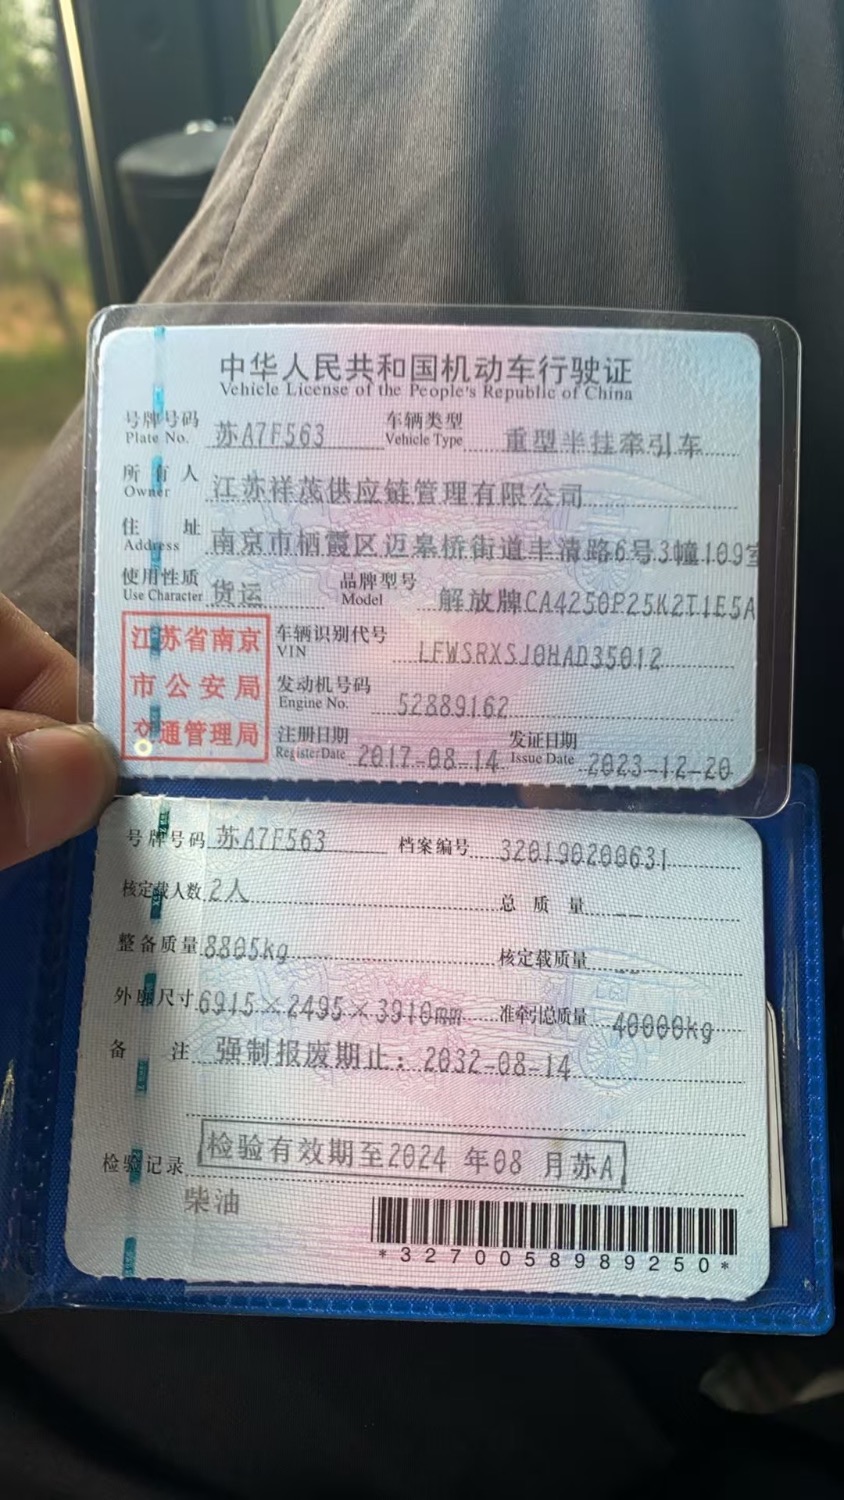 中华人民共和国机动车行驶证
Vehicle License of the People's Republic of China
号牌号码 苏A7F563 车辆类型 重型半挂牵引车
Plate No. Vehicle Type
所有人 江苏祥茂供应链管理有限公司
Owner
住址 南京市栖霞区迈皋桥街道丰清路6号3幢109室
Address
使用性质 货运 品牌型号 解放牌CA4250P25K2T1E5A
Use Character Model
江苏省南京
市公安局
交通管理局
车辆识别代号 LFWSRXSJ0HAD35012
VIN
发动机号码 52889162
Engine No.
注册日期 2017-08-14 发证日期 2023-12-20
Register Date Issue Date
号牌号码 苏A7F563 档案编号 320190200631
核定载人数 2人 总质量 --
整备质量 8805kg 核定载质量 --
外廓尺寸 6915×2495×3910mm 准牵引总质量 40000kg
备注 强制报废期止：2032-08-14
检验记录 检验有效期至2024年08月苏A
柴油
*3270058989250*